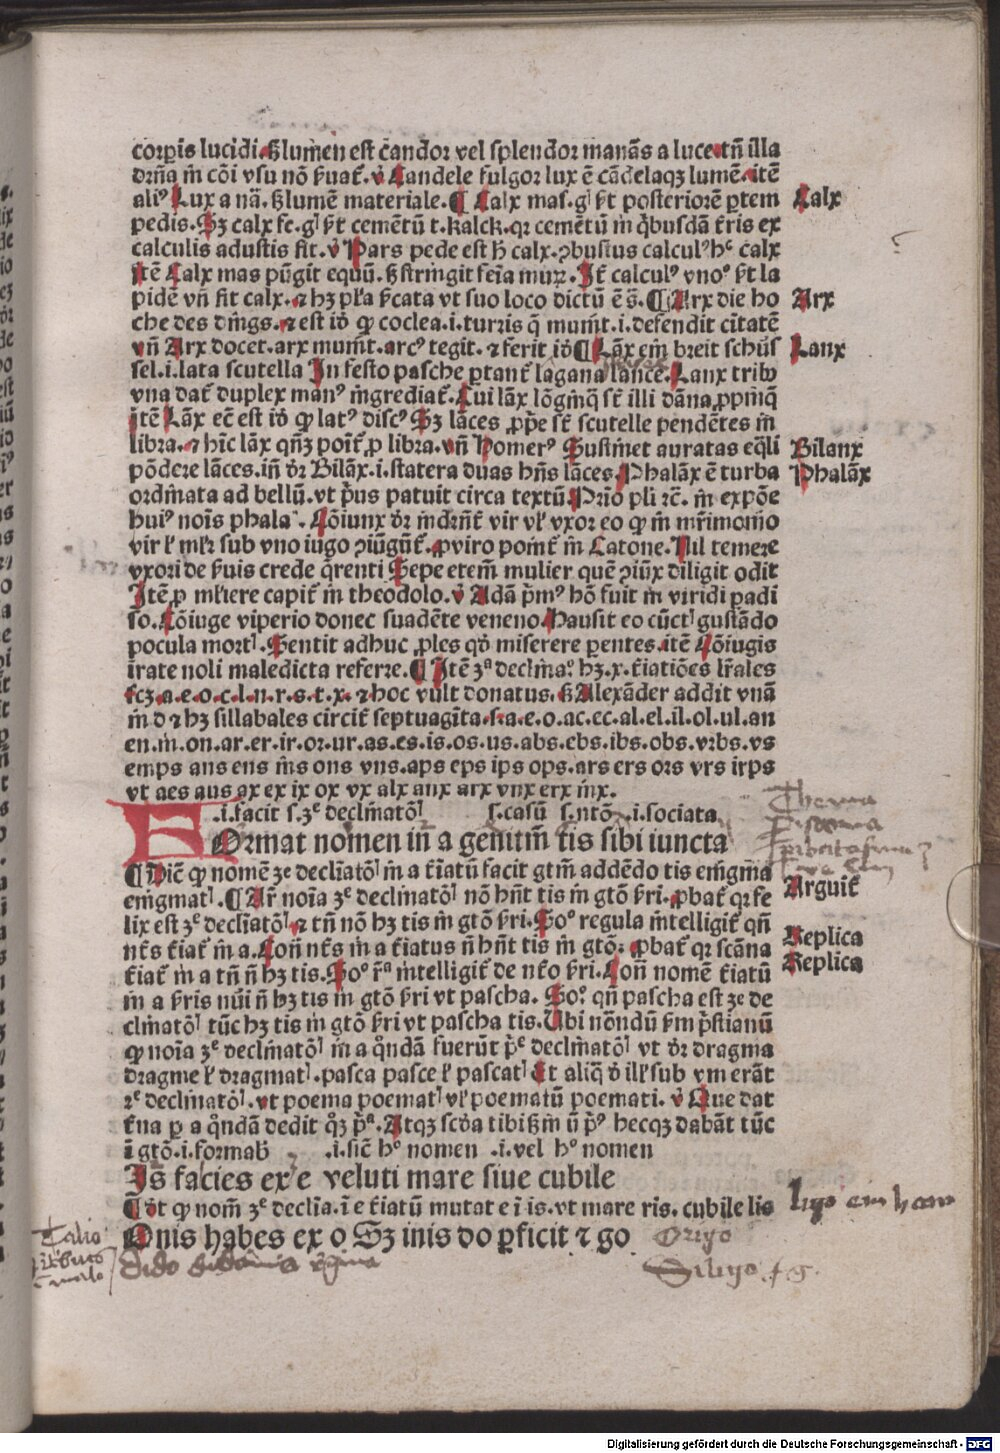 corꝑis lucidi. ẞ lumen est cādor vel splendor manās a luce. tñ illa
dr̄ña in cōi vsu nō ẜuat̄. v̄ Candele fulgor lux ē cādelaqꝫ lumē. itē
aliꝰ Lux a nā. ẞ lumē materiale. ¶ Calx mas. gl ẜt posteriorē ꝑtem
pedis. Sꝫ calx fe. gl ẜt cemētū t. kalck. qꝛ cemētū in q̇busdā t̄ris ex
calculis adustis fit. v̄ Pars pede est h̄ calx. ꝯbustus calculꝰ hᶜ calx
itē Calx mas pūgit equū. ẞ stringit feīa murꝝ. It̄ calculꝰ vnoꝰ ẜt la
pidē vñ fit calx. ⁊ hꝫ pl̄a ẜcata vt suo loco dictū ē s̄. ¶ Arx die ho
che des dings. ⁊ est iō ꝙ coclea .i. turris q̄ munit .i. defendit citatē
vñ Arx docet. arx munit. arcꝰ tegit. ⁊ ferit iō ¶ Lāx ein breit schüs
sel .i. lata scutella In festo pasche ꝑtant̄ lagana lance. Lanx tribꝰ
vna dat̄ duplex manꝰ ingrediat̄. Cui lāx lōginq̄ st̄ illi dāna ꝓpinq̄
itē Lāx ec̄ est iō ꝙ latꝰ discꝰ Sꝫ lāces ꝓp̄e st̄ scutelle pendētes in
libra. ⁊ hīc lāx qñꝫ poit̄ ꝓ libra. vñ Homerꝰ Sustinet auratas eq̄li
pōdere lāces. iñ dr̄ Bilāx .i. statera duas hñs lāces. Phalāx ē turba
ordinata ad bellū. vt pͥus patuit circa textū. Prio pli rc̄. in expōe
huiꝰ nois phalaˣ. Cōiunx dr̄ indrn̄t̄ vir vl̓ vxor eo ꝙ in mr̄imonio
vir l̓ ml̓r sub vno iugo ꝯiūgūt̄. ꝓ viro ponit̄ in Catone. Nil temere
vxori de ẜuis crede q̄renti Sepe etem mulier quē ꝯiūx diligit odit
Itē ꝓ ml̓iere capit̄ in theodolo. v̄ Adā pͥmꝰ hō fuit in viridi ꝑadi
so. Cōiuge viperio donec suadēte veneno. Hausit eo cūctꝭ gustādo
pocula mortꝭ. Sentit adhuc ꝓles qd̓ miserere ꝑentes. itē Cōiugis
irate noli maledicta referre. ¶ Itē 3ᵃ declina. hꝫ .x. t̄iatiōes lr̄ales
scꝫ .a.e.o.c.l.n.r.s.t.x. ⁊ hoc vult donatus. ẞ Alexāder addit vnā
in d ⁊ hꝫ sillabales circit̄ septuagīta. s. a.e.o.ac.ec.al.el.il.ol.ul.an
en.in.on.ar.er.ir.or.ur.as.es.is.os.us.abs.ebs.ibs.obs.vrbs.vs
emps ans ens ins ons vns.aps eps ips ops.ars ers ors vrs irps
vt aes aus ax ex ix ox vx alx anx arx vnx erx inx.
.i. facit s. 3ᵉ declinatōꝭ s. casū s. ntō .i. sociata
FOrmat nomen in a genitin tis sibi iuncta
¶ Dic̄ ꝙ nomē 3e decliatōꝭ in a t̄iatū facit gtm addēdo tis enigma
enigmatꝭ. ¶ Ar̄ noia 3ᵉ declinatōꝭ nō hn̄t tis in gtō ẜri. ꝓbat̄ qꝛ fe
lix est 3ᵉ decliatōꝭ ⁊ tñ nō hꝫ tis in gtō ẜri. Soꝰ regula intelligit̄ qñ
nt̄s t̄iat̄ in a. Con̄ nt̄s in a t̄iatus ñ hn̄t tis in gtō. ꝓbat̄ qꝛ scāna
t̄iat̄ in a tñ ñ hꝫ tis. Soꝰ r̄ᵃ intelligit̄ de nt̄o ẜri. Con̄ nomē t̄iatū
in a ẜris nūi ñ hꝫ tis in gtō ẜri vt pascha. Soꝰ. qñ pascha est 3e de
clinatōꝭ tūc hꝫ tis in gtō ẜri vt pascha tis. Ubi nōndū ẜm pͥstianū
ꝙ noia 3ᵉ declinatōꝭ in a q̊ndā fuerūt pͥᵉ declinatōꝭ vt dr̄ dragma
dragme l̓ dragmatꝭ. pasca pasce l̓ pascatꝭ Et aliq̄ d̓ illꝭ sub vm erāt
2ᵉ declinatōꝭ. vt poema poematꝭ vl̓ poematū poemati. v̄ Que dat
t̄na ꝑ a q̊ndā dedit q̊ꝫ pͥᵃ. Atqꝫ scd̓a tibi ẞm ū pͥꝰ hecqꝫ dabāt tūc
ī gtō. .i. formabᵗ .i. sic̄ hᵒ nomen .i. vel hᵒ nomen
Is facies ex e veluti mare siue cubile
¶ Dt̄ ꝙ nom̄ 3ᵉ declia. i e t̄iatū mutat e i is. vt mare ris. cubile lis
Onis habes ex o Sꝫ inis do ꝑficit ⁊ go
Calx
Arx
Lanx
Bilanx
Phalāx
Arguit̄
Replica
Replica
Origo
Digitalisierung gefördert durch die Deutsche Forschungsgemeinschaft - DFG